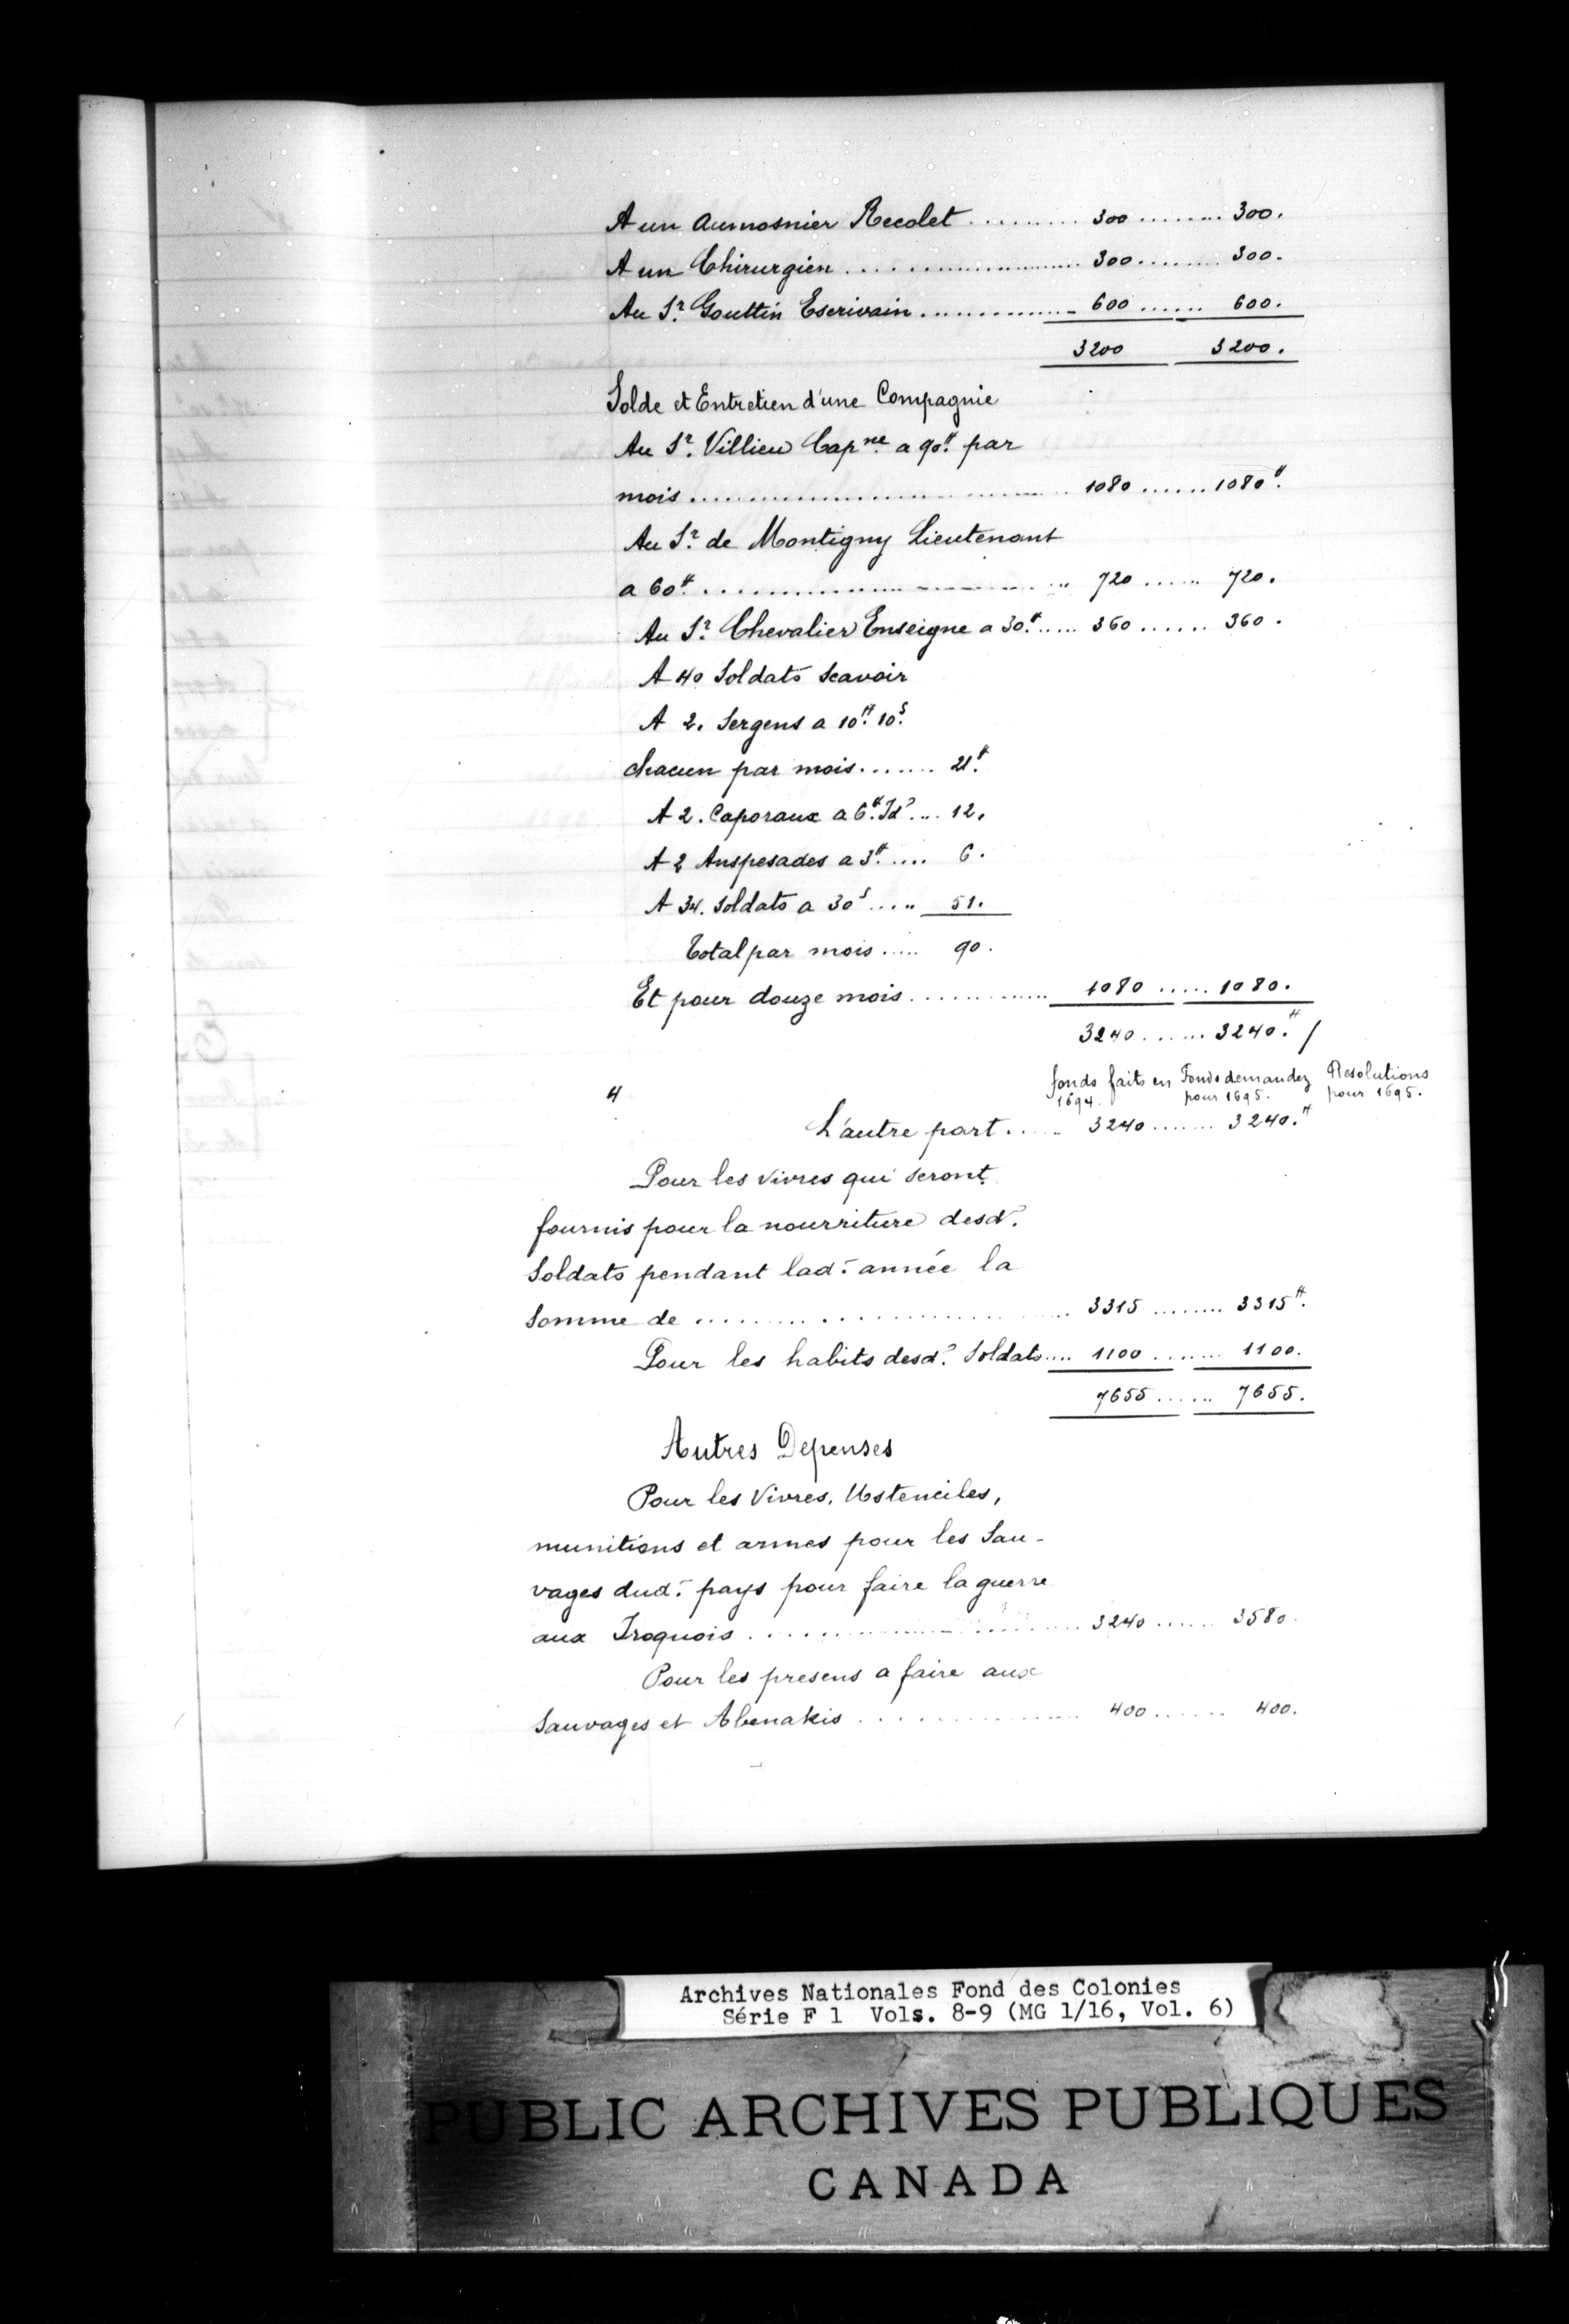 A un Aumosnier Recolet .......... 300 ........ 300.
A un Chirurgien ........................ 300 ........ 300.
Au Sr. Gouttin Escrivain ............... 600 ...... 600.
3200 3200.
Solde et Entretien d'une Compagnie
Au Sr. Villieu Capne. a 90tt. par
mois .................................. 1080 ...... 1080tt.
Au Sr. de Montigny Lieutenant
a 60tt. ................................ 720 ...... 720.
Au Sr. Chevalier Enseigne a 30.tt ..... 360 ...... 360.
A 40 Soldats Scavoir
A 2. Sergens a 10tt. 10s.
chacun par mois ....... 21.tt
A 2. Caporaux a 6.tt Id? ... 12.
A 2 Anspesades a 3tt. .... 6.
A 34. Soldats a 30s ..... 51.
Total par mois ..... 90.
Et pour douze mois ............. 1080 ..... 1080.
3240 ...... 3240.tt /
fonds faits en Fonds demandez Resolutions
1694. pour 1695. pour 1695.
4
L'autre part ..... 3240 ....... 3240.tt
Pour les vivres qui seront
fournis pour la nourriture desd.
Soldats pendant lad. année la
Somme de ........................ 3315 ........ 3315tt.
Pour les habits desd. Soldats .... 1100 ....... 1100.
7655 ...... 7655.
Autres Depenses
Pour les Vivres, Ustenciles,
munitions et armes pour les Sau-
vages dud. pays pour faire la guerre
aux Iroquois ........................ 3240 ...... 3580.
Pour les presens a faire aux
Sauvages et Abenakis ................ 400 ...... 400.
Archives Nationales Fond des Colonies
Série F 1 Vols. 8-9 (MG 1/16, Vol. 6)
PUBLIC ARCHIVES PUBLIQUES
CANADA